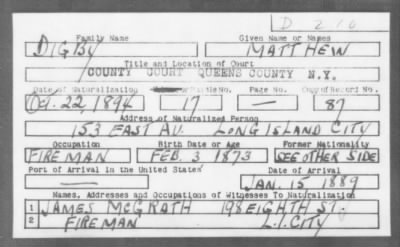 D 210
Family Name Given Name or Names
DIGBY MATTHEW
Title and Location of Court
COUNTY COURT QUEENS COUNTY N.Y.
Date of Naturalization Bundle No. Page No. Copy of Record No.
Oct. 22, 1894 17 — 87
Address of Naturalized Person
153 EAST AV. LONG ISLAND CITY
Occupation Birth Date or Age Former Nationality
FIREMAN FEB. 3 1873 SEE OTHER SIDE
Port of Arrival in the United States Date of Arrival
— JAN. 15 1889
Names, Addresses and Occupations of Witnesses To Naturalization
1 JAMES McGRATH 198 EIGHTH ST.
2 FIREMAN L.I. CITY